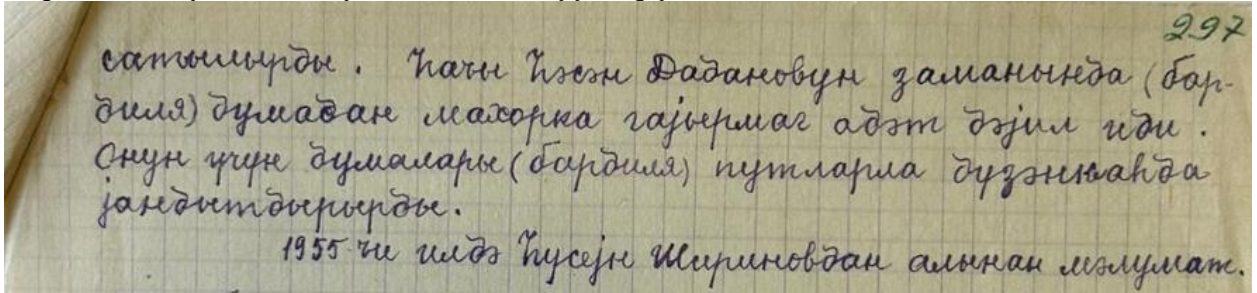 297
сатылырды. Һачы Һәсән Дадановун заманында (бар-
диля) думадан махорка гајырмаг адәт дәјил иди.
Онун үчүн думалары (бардиля) путларла дузәнкаһда
јандытдырырды.
1955-чи илдә Һусејн Шириновдан алынан мәлумат.